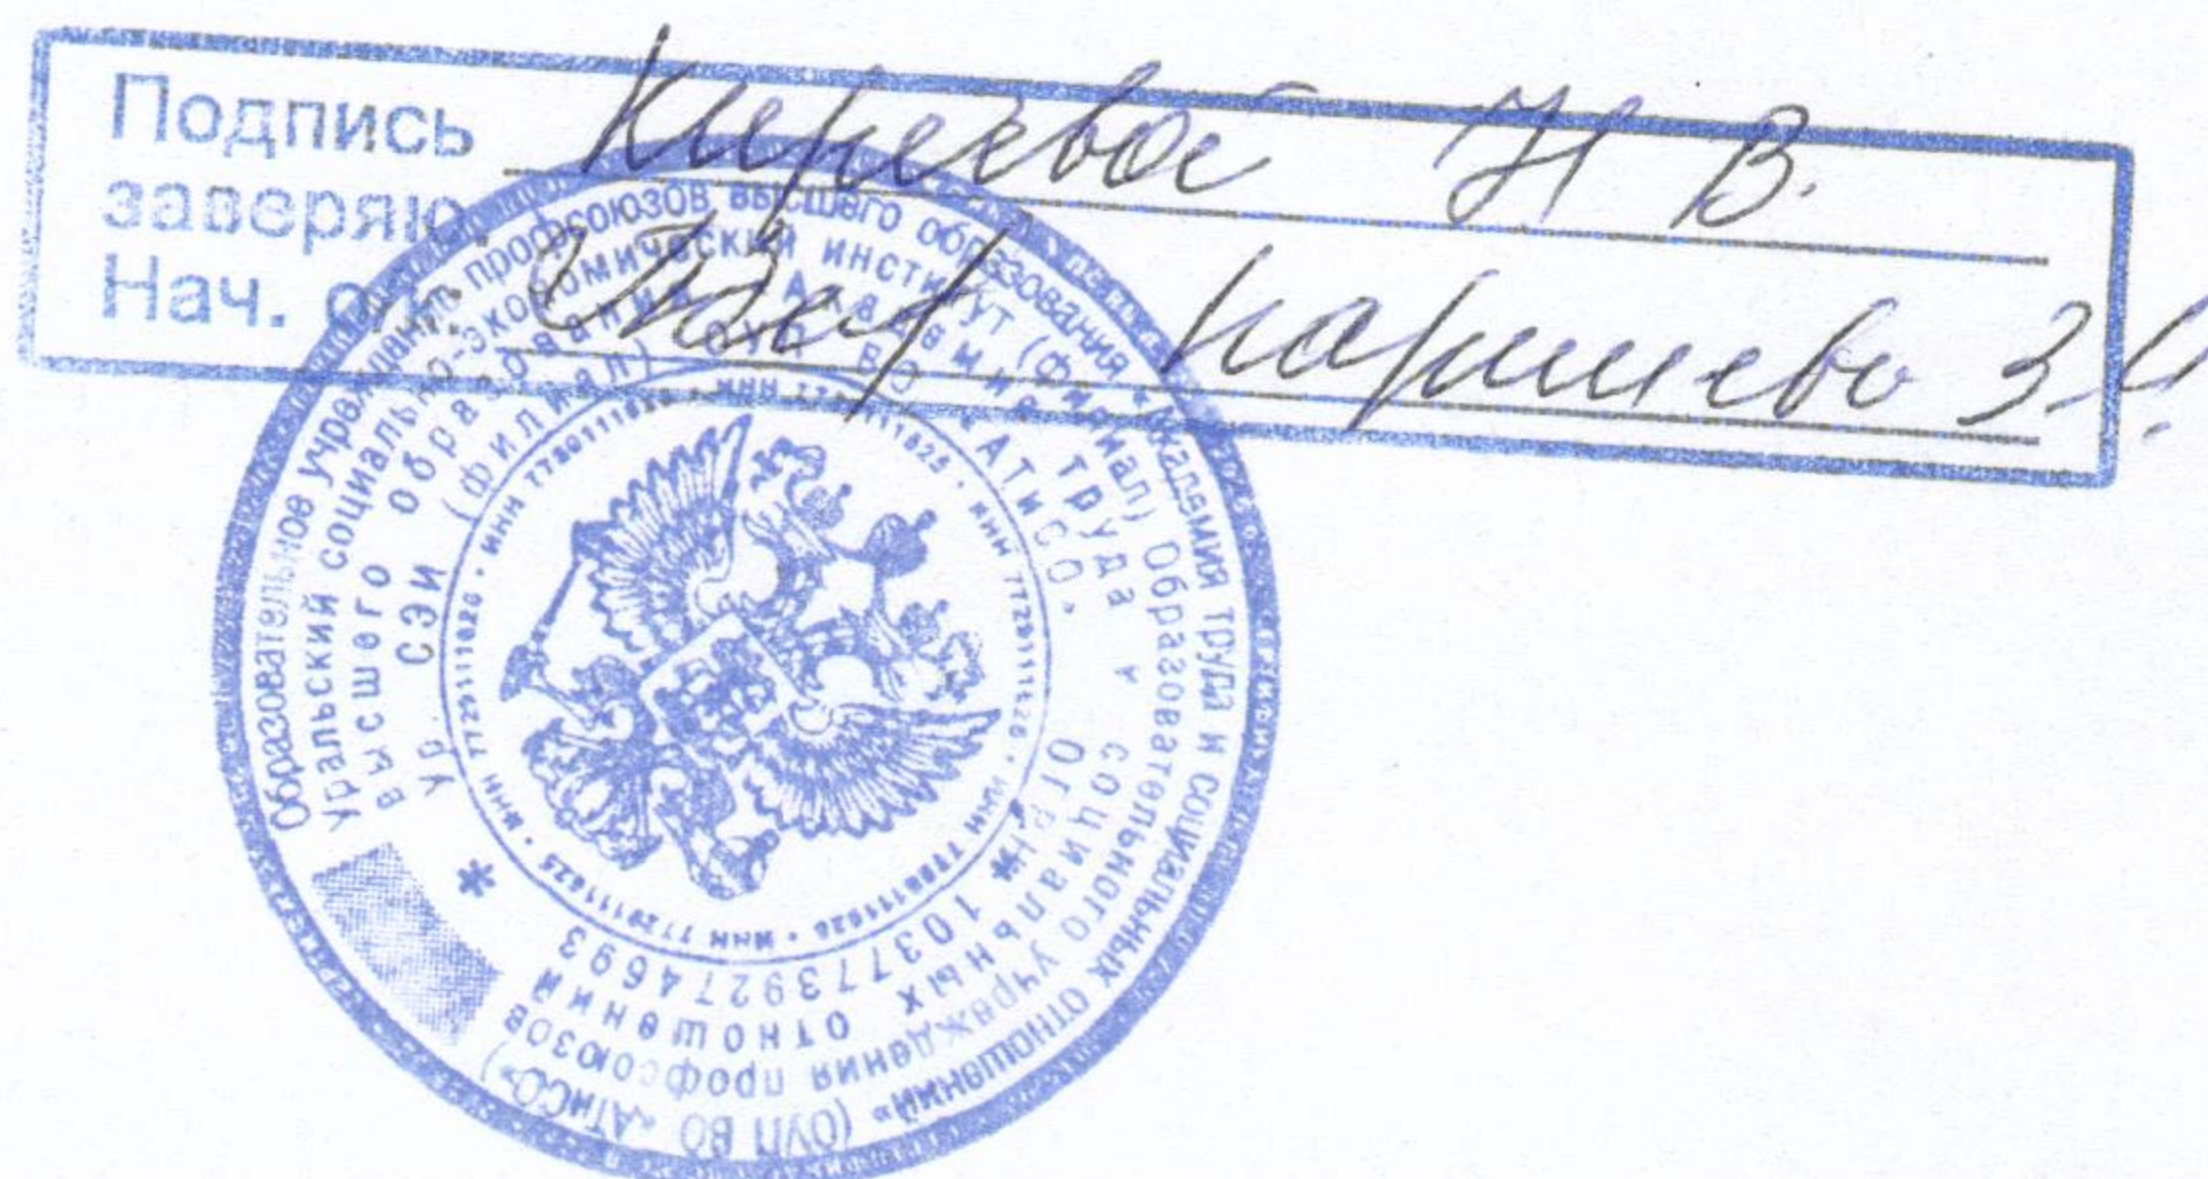 Подпись Киреевой Н В.
заверяю.
Нач. о.к.
Образовательное учреждение профсоюзов высшего образования «Академия труда и социальных отношений» (ОУП ВО «АТиСО»)
Уральский социально-экономический институт (филиал) Образовательного учреждения профсоюзов
высшего образования «Академия труда и социальных отношений»
УрСЭИ (филиал) ОУП ВО «АТиСО» * ОГРН 1037739274693 *
ИНН 7729111625 • ИНН 7729111625 • ИНН 7729111625 • ИНН 7729111625 • ИНН 7729111625 • ИНН 7729111625